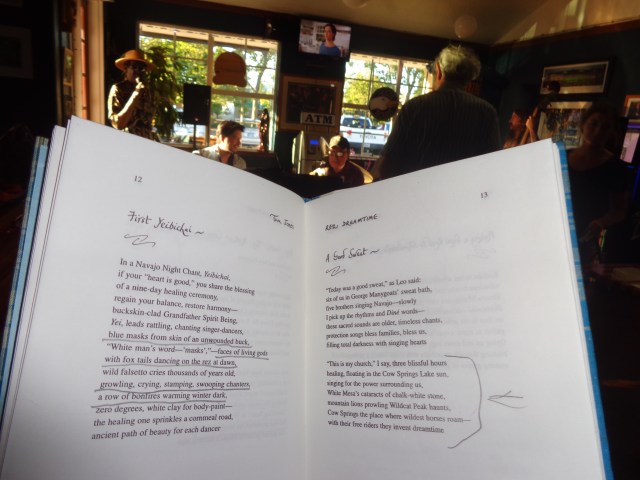 ATM
12
First Yeibichai
In a Navajo Night Chant, Yeibichai,
if your "heart is good," you share the blessing
of a nine-day healing ceremony,
regain your balance, restore harmony—
buckskin-clad Grandfather Spirit Being,
Yei, leads rattling, chanting singer-dancers,
blue masks from skin of an unwounded buck,
"White man's word—'masks',"—faces of living gods
with fox tails dancing on the rez at dawn,
wild falsetto cries thousands of years old,
growling, crying, stamping, swooping chanters,
a row of bonfires warming winter dark,
zero degrees, white clay for body-paint—
the healing one sprinkles a cornmeal road,
ancient path of beauty for each dancer
13
REZ DREAMTIME
A Good Sweat
"Today was a good sweat," as Len said:
six of us in George Manygoats' sweat bath,
five brothers singing Navajo—slowly
I pick up the rhythms and Diné words—
these sacred sounds are older, timeless chants,
protection songs bless families, bless us,
filling total darkness with singing hearts
"This is my church," I say, three blissful hours
healing, floating in the Cow Springs Lake sun,
singing for the power surrounding us,
White Mesa's cataracts of chalk-white stone,
mountain lions prowling Wildcat Peak haunts,
Cow Springs the place where wildest horses roam—
with their free riders they invent dreamtime